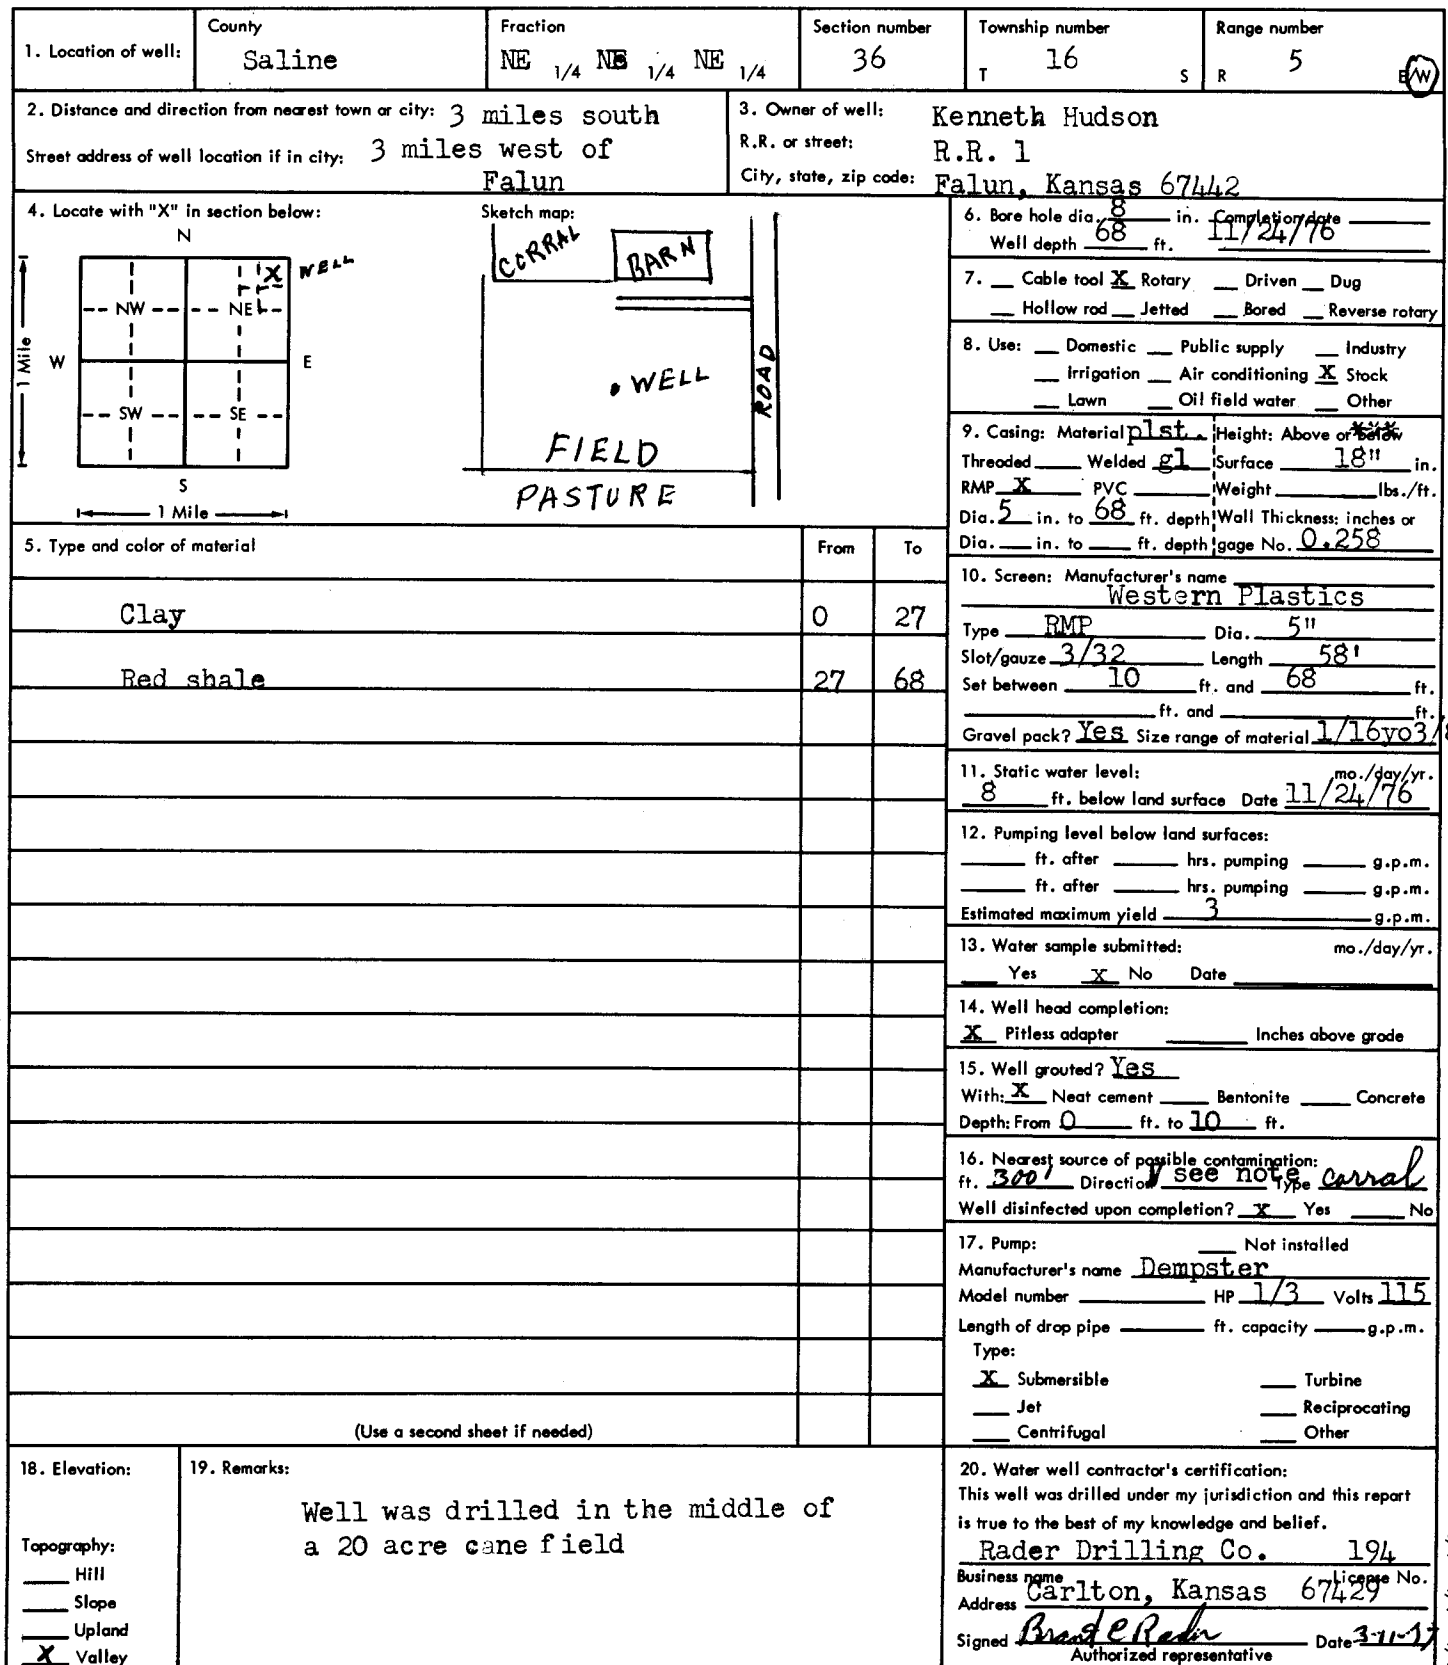 1. Location of well:
County
Saline
Fraction
NE 1/4 NE 1/4 NE 1/4
Section number
36
Township number
T 16 S
Range number
R 5 E/W
2. Distance and direction from nearest town or city: 3 miles south
Street address of well location if in city: 3 miles west of
Falun
3. Owner of well: Kenneth Hudson
R.R. or street: R.R. 1
City, state, zip code: Falun, Kansas 67442
4. Locate with "X" in section below:
N
X WELL
NW NE
W E
1 Mile
SW SE
S
1 Mile
Sketch map:
CORRAL
BARN
WELL
ROAD
FIELD
PASTURE
5. Type and color of material From To
Clay 0 27
Red shale 27 68
(Use a second sheet if needed)
6. Bore hole dia. 8 in. Completion date
Well depth 68 ft. 11/24/76
7. Cable tool X Rotary Driven Dug
Hollow rod Jetted Bored Reverse rotary
8. Use: Domestic Public supply Industry
Irrigation Air conditioning X Stock
Lawn Oil field water Other
9. Casing: Material plst. Height: Above or below
Threaded Welded gl Surface 18" in.
RMP X PVC Weight lbs./ft.
Dia. 5 in. to 68 ft. depth Wall Thickness: inches or
Dia. in. to ft. depth gage No. 0.258
10. Screen: Manufacturer's name
Western Plastics
Type RMP Dia. 5"
Slot/gauze 3/32 Length 58'
Set between 10 ft. and 68 ft.
ft. and ft.
Gravel pack? Yes Size range of material 1/16yo3/8
11. Static water level: mo./day/yr.
8 ft. below land surface Date 11/24/76
12. Pumping level below land surfaces:
ft. after hrs. pumping g.p.m.
ft. after hrs. pumping g.p.m.
Estimated maximum yield 3 g.p.m.
13. Water sample submitted: mo./day/yr.
Yes x No Date
14. Well head completion:
X Pitless adapter Inches above grade
15. Well grouted? Yes
With: X Neat cement Bentonite Concrete
Depth: From 0 ft. to 10 ft.
16. Nearest source of possible contamination:
ft. 300' Direction see note Type corral
Well disinfected upon completion? x Yes No
17. Pump: Not installed
Manufacturer's name Dempster
Model number HP 1/3 Volts 115
Length of drop pipe ft. capacity g.p.m.
Type:
X Submersible Turbine
Jet Reciprocating
Centrifugal Other
18. Elevation:
Topography:
Hill
Slope
Upland
X Valley
19. Remarks:
Well was drilled in the middle of
a 20 acre cane field
20. Water well contractor's certification:
This well was drilled under my jurisdiction and this report
is true to the best of my knowledge and belief.
Rader Drilling Co. 194
Business name License No.
Address Carlton, Kansas 67429
Signed Rader Date 3-11-77
Authorized representative